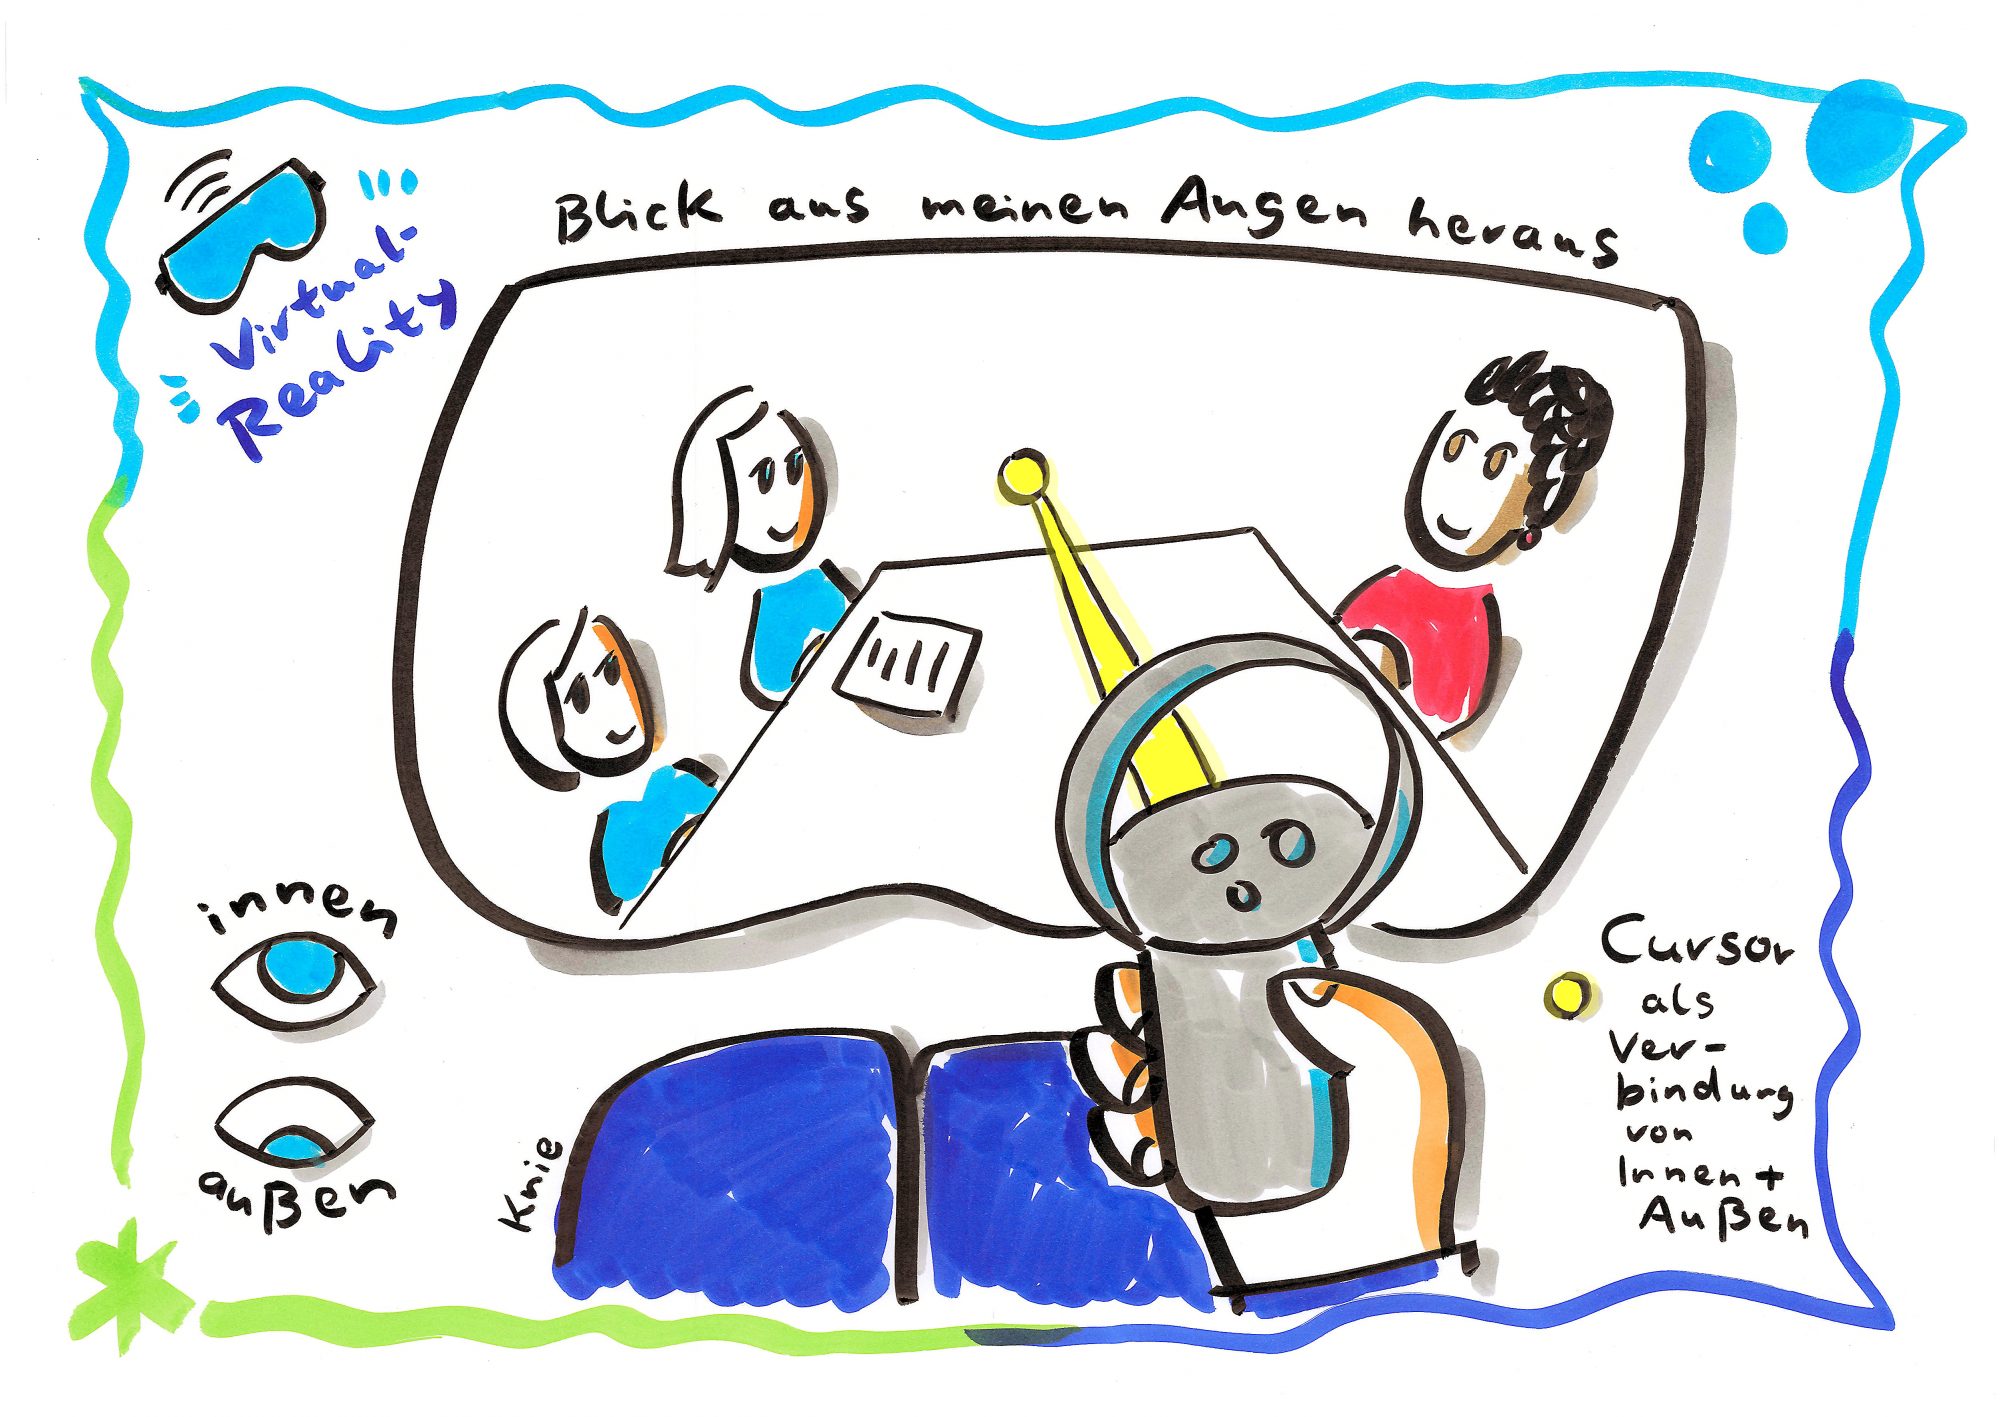 Blick aus meinen Augen heraus
Virtual-
Reality
innen
außen
Knie
Cursor
als
Ver-
bindung
von
Innen +
Außen